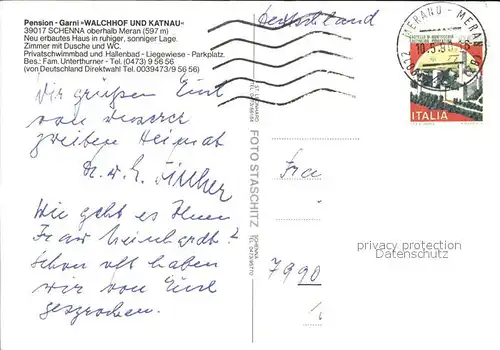 Pension - Garni »WALCHHOF UND KATNAU«
39017 SCHENNA oberhalb Meran (597 m)
Neu erbautes Haus in ruhiger, sonniger Lage.
Zimmer mit Dusche und WC.
Privatschwimmbad und Hallenbad - Liegewiese - Parkplatz.
Bes.: Fam. Unterthurner - Tel. (0473) 9 56 56
(von Deutschland Direktwahl Tel. 0039473/9 56 56)
Deutschland
MERANO - MERAN
ITALIA
Wir grüßen Euch
von unserer
zweiten Heimat
Wie geht es Ihnen
Frau Meinhardt?
Schon oft haben
wir von Euch
gesprochen.
FOTO STASCHITZ
ST. LEONHARD
SCHENNA
Fra
7990
privacy protection
watermark